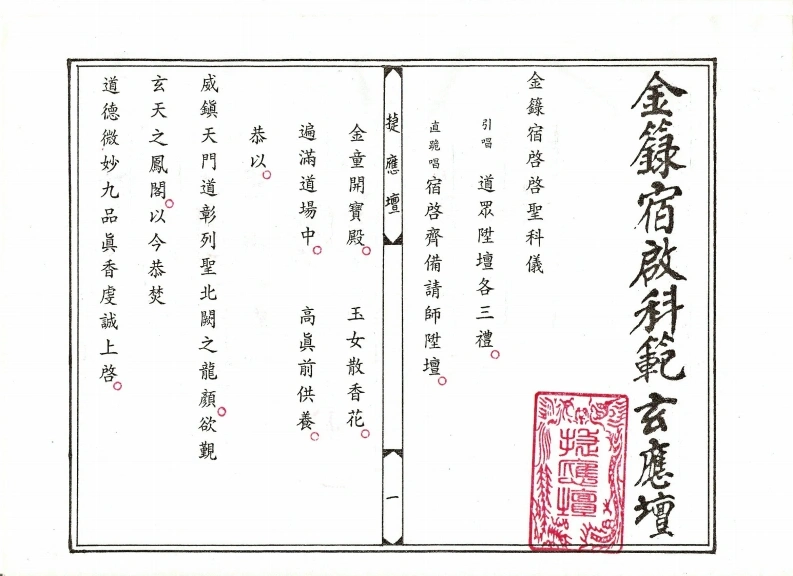 金籙宿啟科範玄應壇
金籙宿啓啓聖科儀
引唱 道眾陞壇各三禮。
直跪唱 宿啓齊備請師陞壇。
捷應壇
一
金童開寶殿。 玉女散香花。
遍滿道場中。 高眞前供養。
恭以。
威鎮天門道彰列聖北闕之龍顏。欲觀
玄天之鳳閣。以今恭焚
道德微妙九品眞香虔誠上啓。
捷應壇